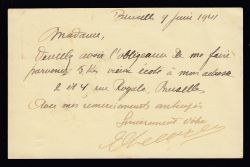 Bruxelles 7 juin 1941
Madame,
Veuillez avoir l'obligeance de me faire
parvenir 5 Kgs à mon adresse
2 et 4 rue Royale, Bruxelles
Avec mes remerciements anticipés
Sincèrement vôtre